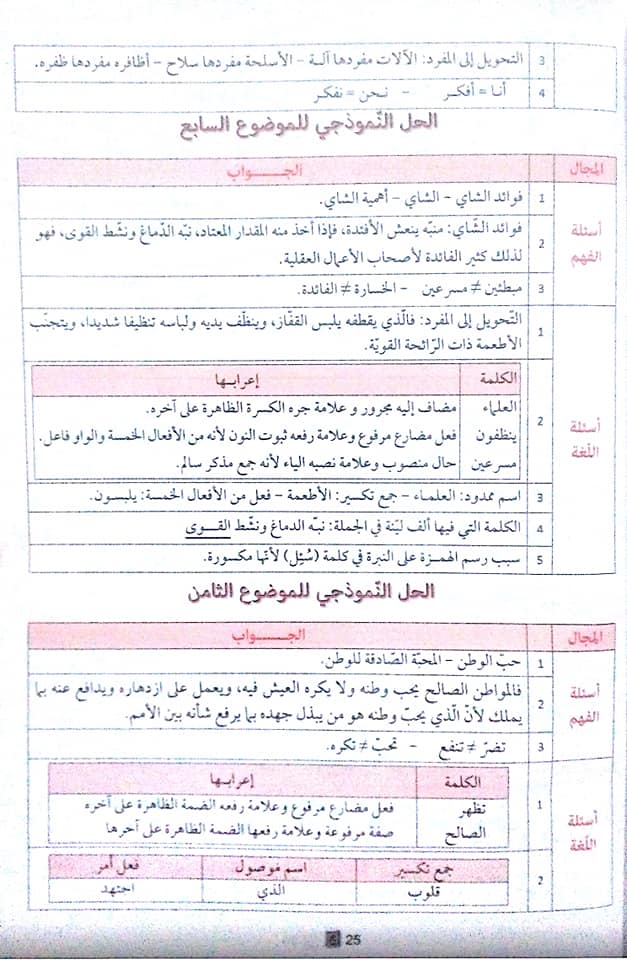 3 التحويل إلى المفرد: الآلات مفردها آلـة – الأسلحة مفردها سلاح – أظافره مفردها ظفره.
4 أنـا = أفكـر - نـحن = نفكـر
الحل النّموذجي للموضوع السابع
المجال الجـــواب
أسئلة الفهم
1 فوائد الشاي – الشاي – أهمية الشاي.
2 فوائد الشّاي: منبّه ينعش الأفئدة، فإذا أخذ منه المقدار المعتاد، نبّه الدّماغ ونشّط القوى، فهو
لذلك كثير الفائدة لأصحاب الأعمال العقلية.
3 مبطئين ≠ مسرعين - الخسارة ≠ الفائدة.
أسئلة اللّغة
1 التّحويل إلى المفرد: فالّذي يقطفه يلبس القفّاز، وينظّف يديه ولباسه تنظيفا شديدا، ويتجنّب
الأطعمة ذات الرّائحة القويّة.
2
الكلمة إعرابـها
العلماء مضاف إليه مجرور و علامة جره الكسرة الظاهرة على آخره.
ينظفون فعل مضارع مرفوع وعلامة رفعه ثبوت النون لأنه من الأفعال الخمسة والواو فاعل.
مسرعين حال منصوب وعلامة نصبه الياء لأنه جمع مذكر سالم.
3 اسم ممدود: العلمـاء – جمع تكسير: الأطعمة – فعل من الأفعال الخمسة: يلبسـون.
4 الكلمة التي فيها ألف ليّنة في الجملة: نبّـه الدماغ ونشّط القــوى
5 سبب رسم الهمـزة على النبرة في كلمة (سُئِل) لأنّها مكسورة.
الحل النّموذجي للموضوع الثامن
المجال الجـــواب
أسئلة الفهم
1 حبّ الوطن – المحبّة الصّادقة للوطن.
2 فالمواطن الصالح يحب وطنه ولا يكره العيش فيه، ويعمل على ازدهاره ويدافع عنه بما
يملك لأنّ الّذي يحبّ وطنه هو من يبذل جهده بما يرفع شأنه بين الأمم.
3 تضرّ ≠ تنفع - تحبّ ≠ تكره.
أسئلة اللّغة
1
الكلمة إعرابـها
تظهر فعل مضارع مرفوع وعلامة رفعه الضمة الظاهرة على آخره
الصالح صفة مرفوعة وعلامة رفعها الضمة الظاهرة على آخرها
2
جمع تكسير اسم موصول فعل أمر
قلوب الذي اجتهد
25